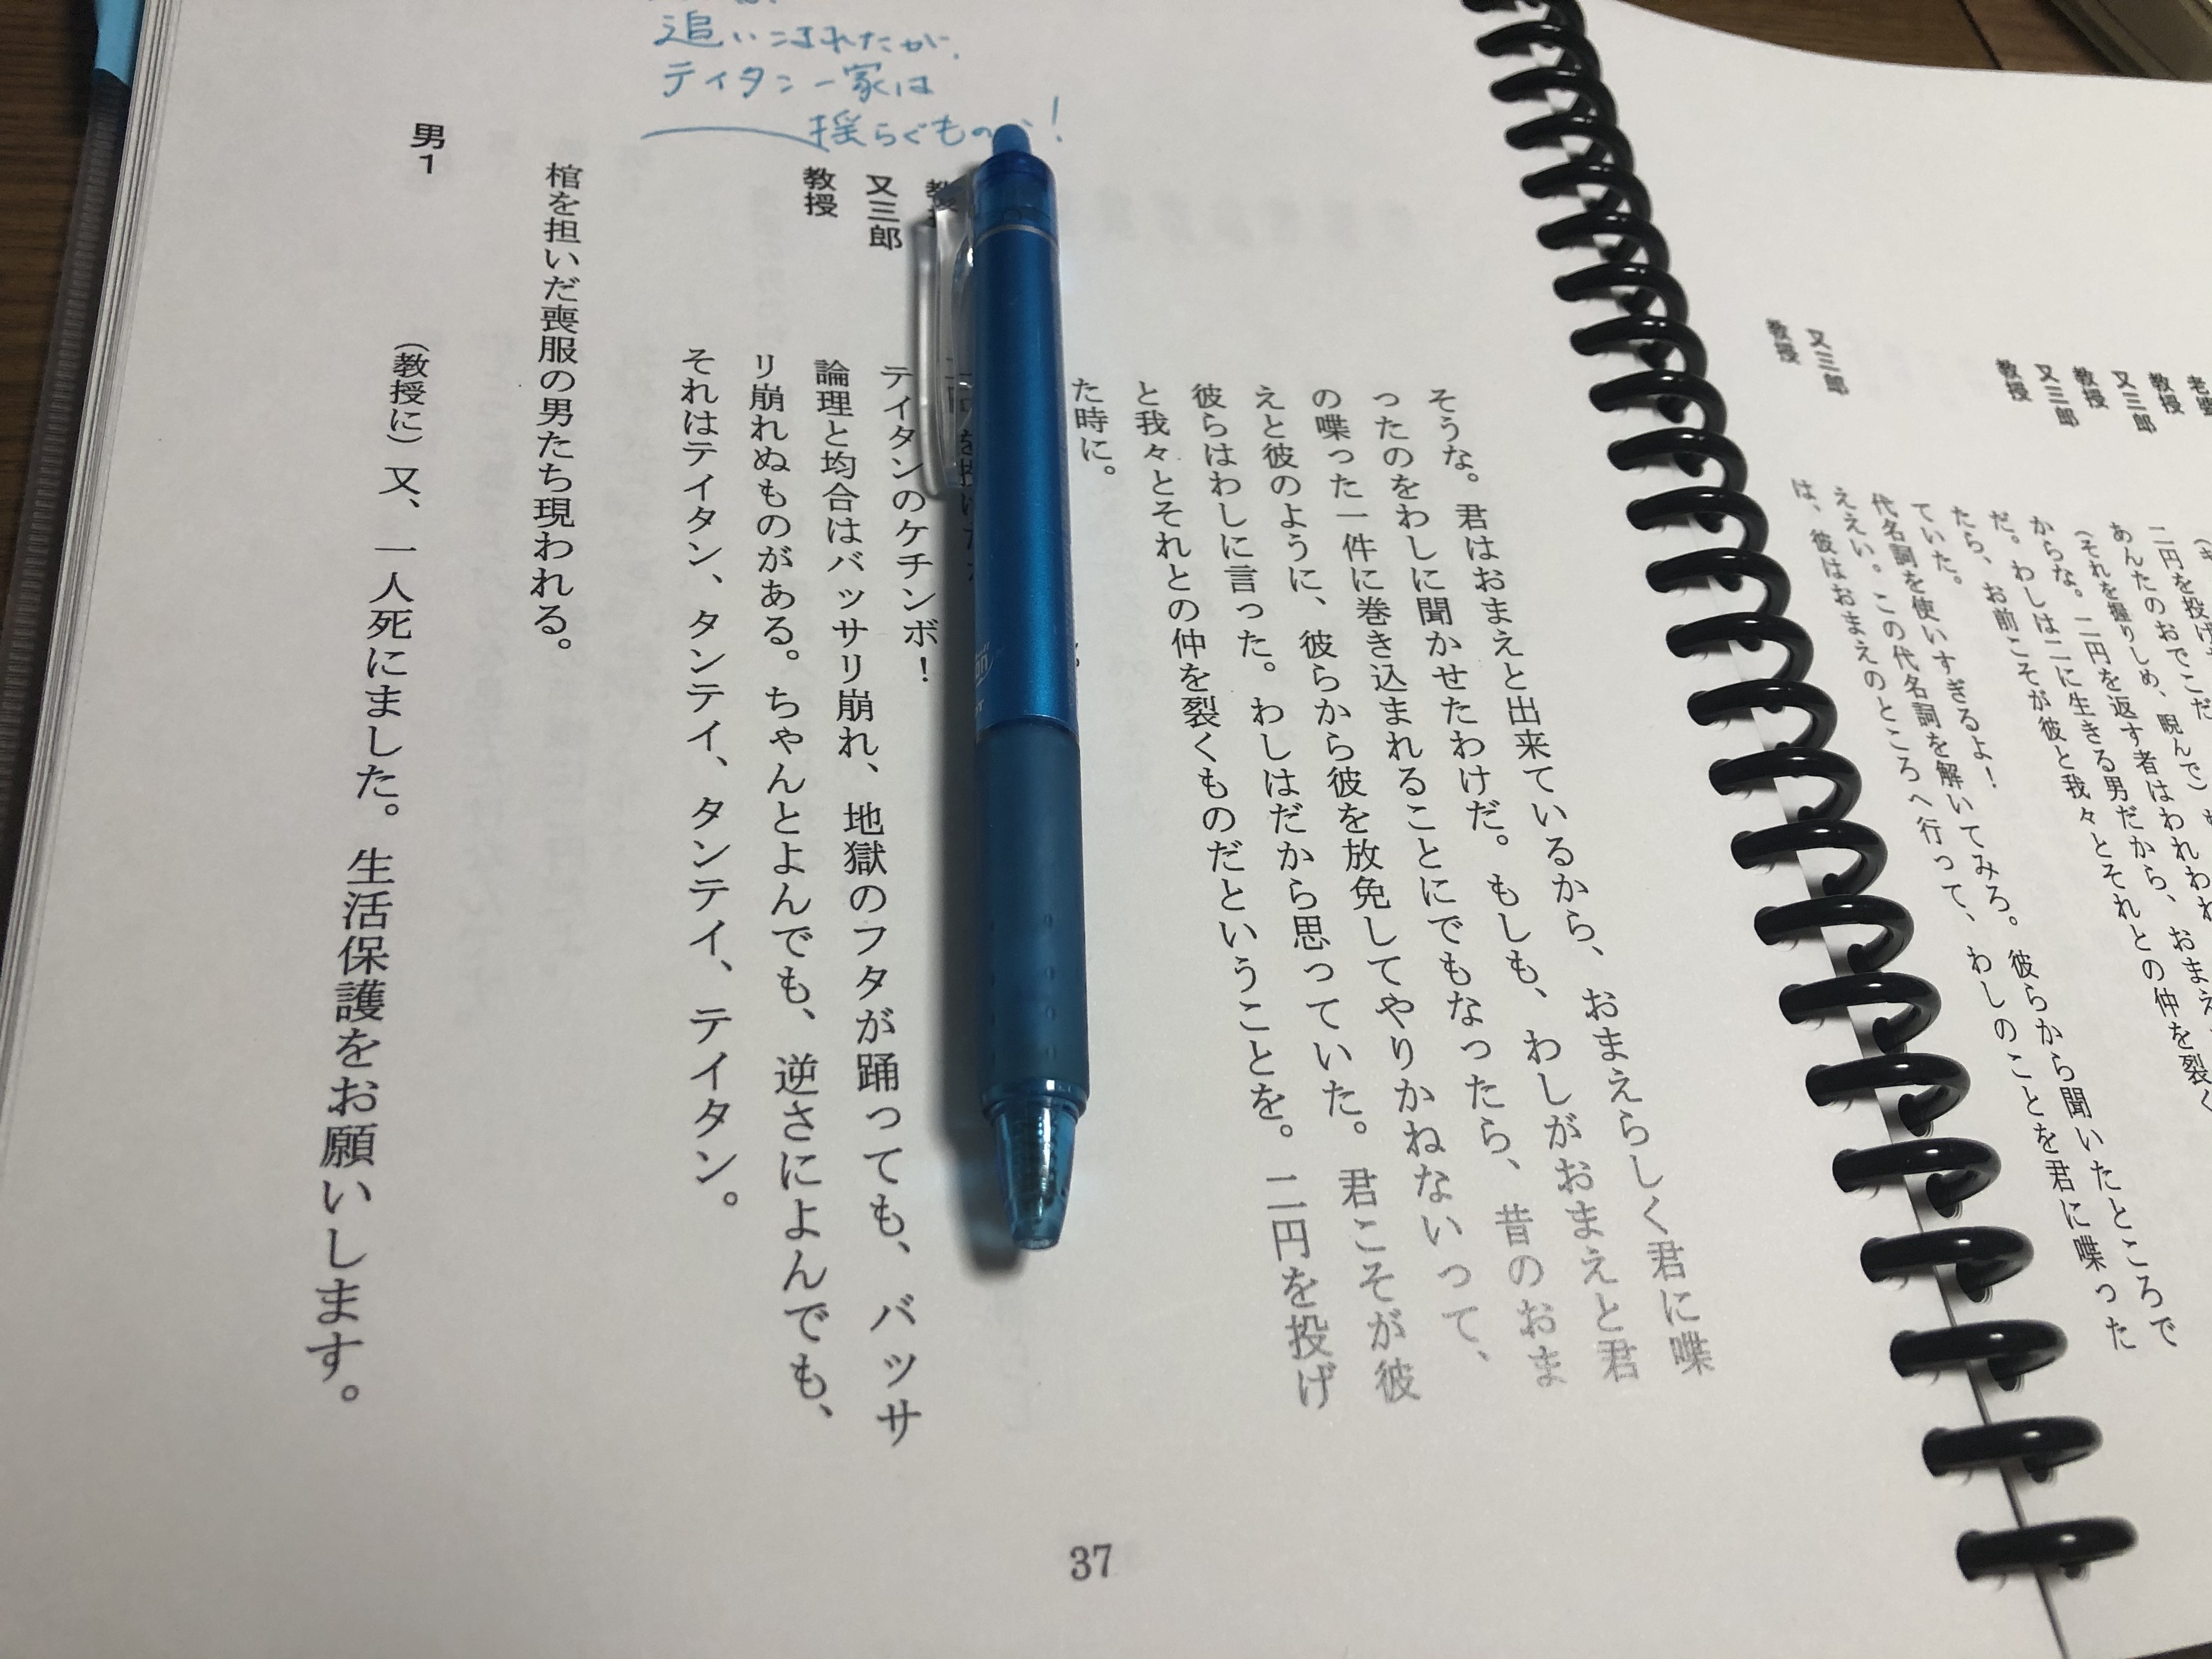 追いこまれたが、
テイタン一家は
揺らぐもの
！
そうな。君はおまえと出来ているから、おまえらしく君に喋
ったのをわしに聞かせたわけだ。もしも、わしがおまえと君
の喋った一件に巻き込まれることにでもなったら、昔のおま
えと彼のように、彼らから彼を放免してやりかねないって、
彼らはわしに言った。わしはだから思っていた。君こそが彼
と我々とそれとの仲を裂くものだということを。二円を投げ
た時に。
又三郎
テイタンのケチンボ！
教授
論理と均合はバッサリ崩れ、地獄のフタが踊っても、バッサ
リ崩れぬものがある。ちゃんとよんでも、逆さによんでも、
それはテイタン、タンテイ、タンテイ、テイタン。
棺を担いだ喪服の男たち現われる。
男1
（教授に）又、一人死にました。生活保護をお願いします。
37
教授
又三郎
教授
又三郎
教授
又三郎
教授
二円を投げ
あんたのおでこだ
（それを握りしめ、睨んで）
からな。二円を返す者はわれわれ
だ。わしは二に生きる男だから、おまえ
たら、お前こそが彼と我々とそれとの仲を裂く
ていた。
代名詞を使いすぎるよ！
ええい。この代名詞を解いてみろ。彼らから聞いたところで
は、彼はおまえのところへ行って、わしのことを君に喋った